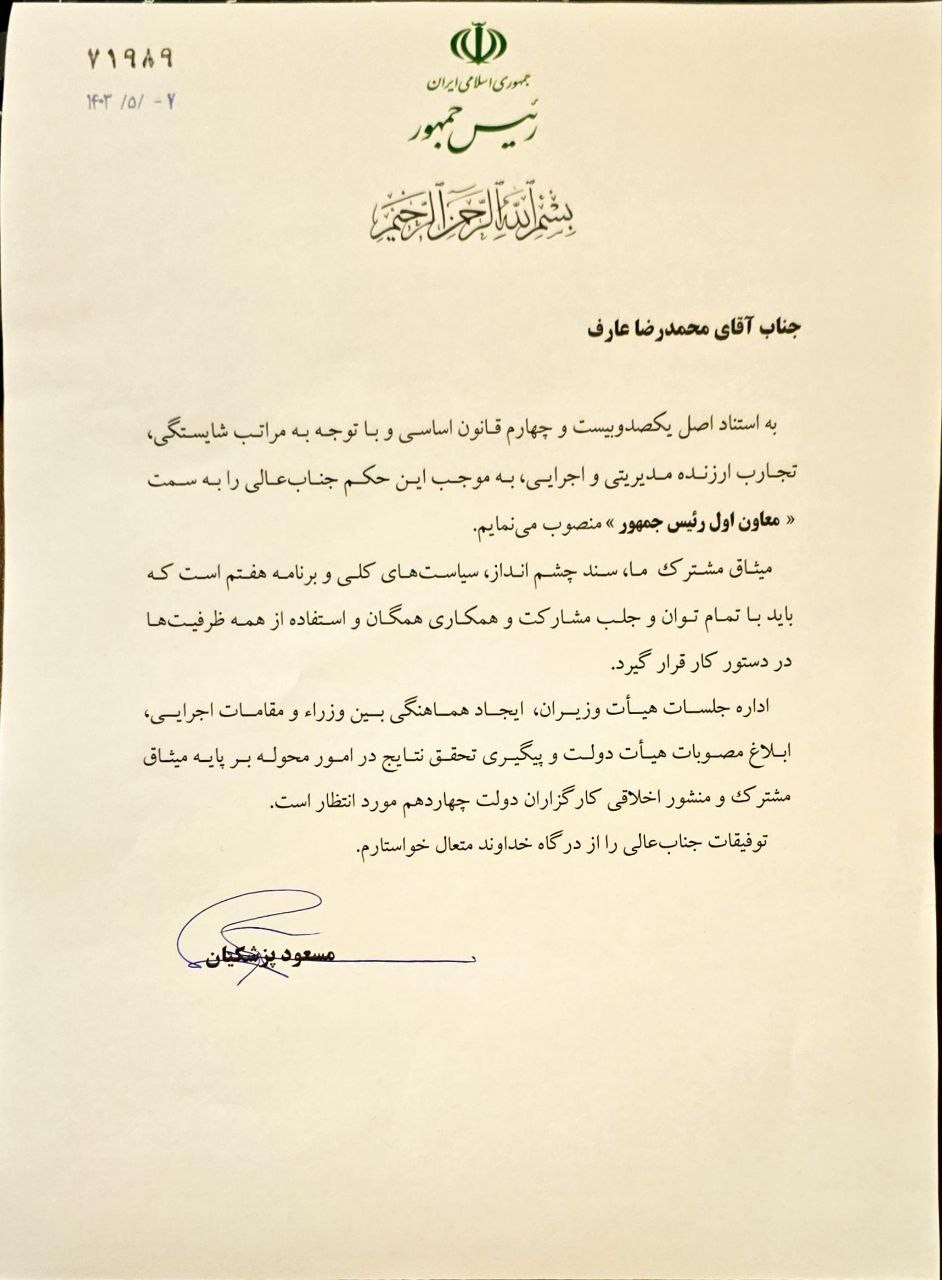 ۷۱۹۸۹
۱۴۰۳ /۵/ -۷
جمهوری اسلامی ایران
رئیس جمهور
بسم الله الرحمن الرحیم
جناب آقای محمدرضا عارف
به استناد اصل یکصدوبیست و چهارم قانون اساسی و با توجه به مراتب شایستگی،
تجارب ارزنده مدیریتی و اجرایی، به موجب این حکم جناب‌عالی را به سمت
« معاون اول رئیس جمهور » منصوب می‌نمایم.
میثاق مشترك ما، سند چشم انداز، سیاست‌های کلی و برنامه هفتم است که
باید با تمام توان و جلب مشارکت و همکاری همگان و استفاده از همه ظرفیت‌ها
در دستور کار قرار گیرد.
اداره جلسات هیأت وزیران، ایجاد هماهنگی بین وزراء و مقامات اجرایی،
ابلاغ مصوبات هیأت دولت و پیگیری تحقق نتایج در امور محوله بر پایه میثاق
مشترك و منشور اخلاقی کارگزاران دولت چهاردهم مورد انتظار است.
توفیقات جناب‌عالی را از درگاه خداوند متعال خواستارم.
مسعود پزشکیان